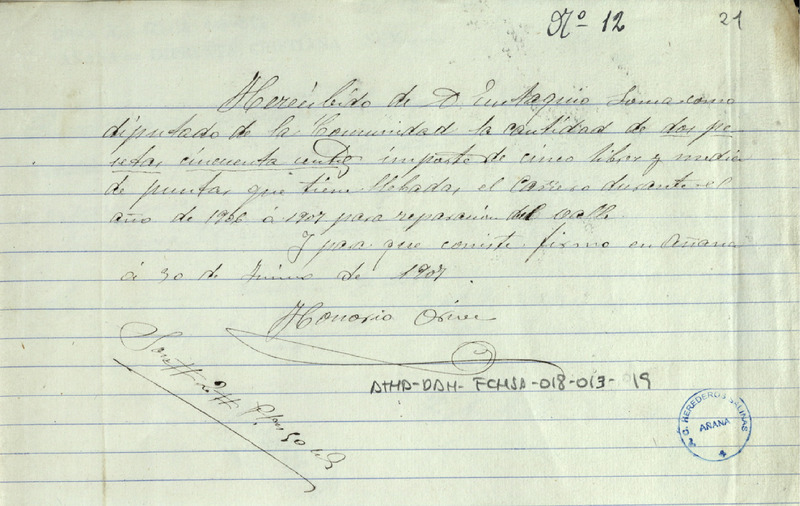 Nº 12
21
He recibido de D. Eustaquio Loma como
diputado de la Comunidad la cantidad de dos pe-
setas cincuenta cents importe de cinco libras y media
de puntas que tiene llebadas el Carrero durante el
año de 1906 á 1907 para reparación del valle.
Y para que conste firmo en Añana
á 30 de Junio de 1907
Honorio
Son 2 Ptas 50 cts
ATHA-DAH-FCHSA-018-013-19
C. HEREDEROS SALINAS
AÑANA